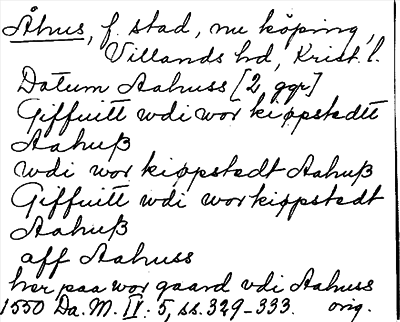 Åhus, f. stad, nu köping,
Villands hd, Krist. l.
Datum Aahuss [2 ggr]
Giffuitt wdi wor kiøpstedtt
Aahuß
wdi wor kiøpstedt Aahuß
Giffuitt wdi wor kiøpstedt
Aahuß
aff Aahuss
her paa wor gaard vdi Aahuss
1550 Da. M. II: 5, ss. 329-333. orig.